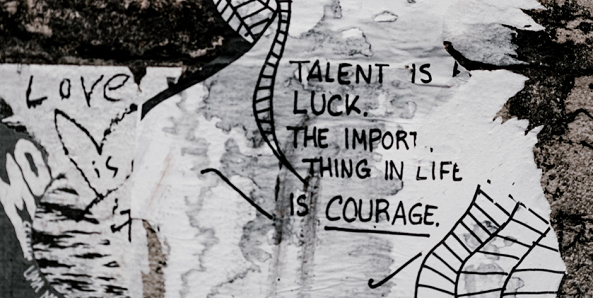 Love
is
TALENT IS
LUCK.
THE IMPORT.
THING IN LIFE
IS COURAGE.